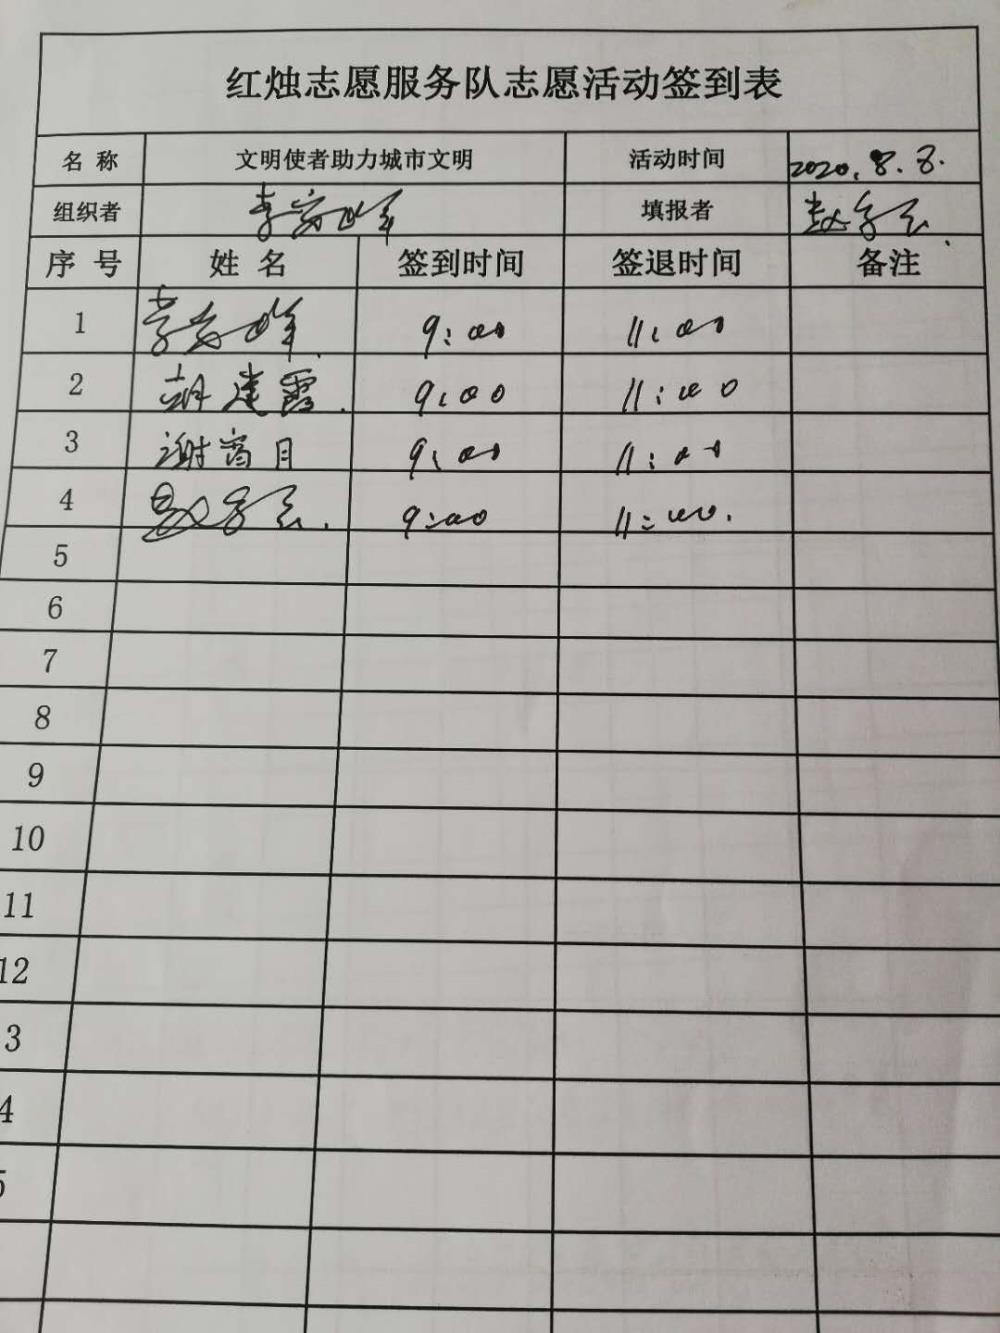 红烛志愿服务队志愿活动签到表
名 称 文明使者助力城市文明 活动时间 2020.8.8.
组织者 填报者
序 号 姓 名 签到时间 签退时间 备注
1 9:00 11:00
2 胡建霞. 9:00 11:00
3 谢商月 9:00 11:00
4 9:00 11:00.
5
6
7
8
9
10
11
12
3
4
5